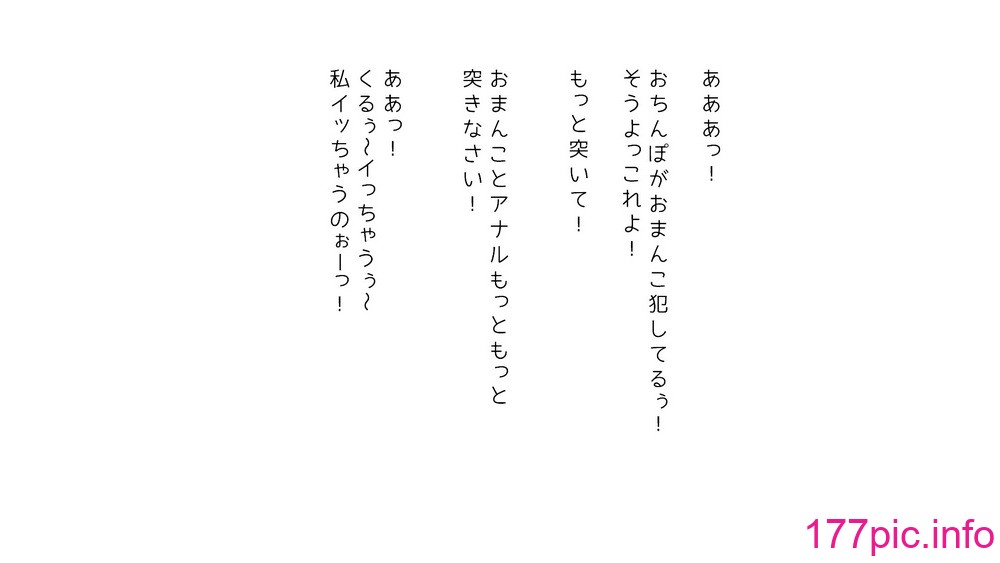 あああっ！
おちんぽがおまんこ犯してるぅ！
そうよっこれよ！
もっと突いて！
おまんことアナルもっともっと
突きなさい！
ああっ！
くるぅ～イっちゃうぅ～
私イッちゃうのぉーっ！
177pic.info